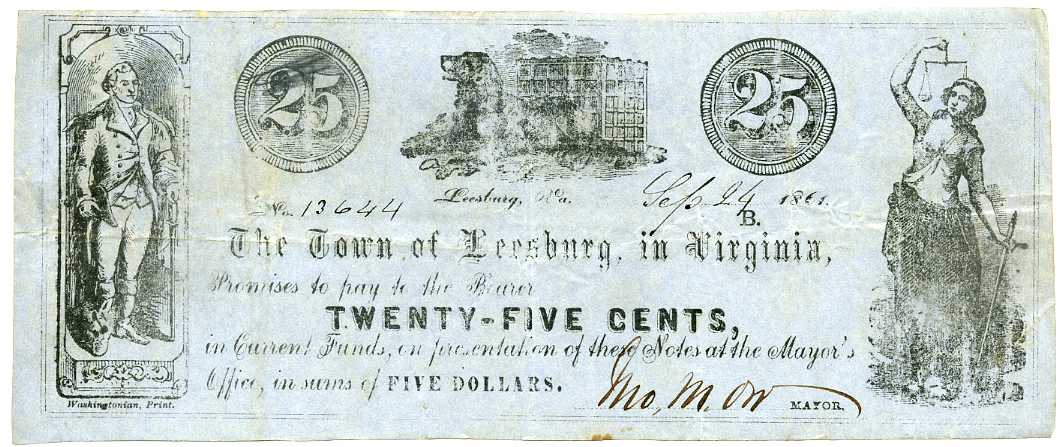 25 25
No. 13644 Leesburg, Va. Sep. 24 1861.
B.
The Town of Leesburg, in Virginia,
Promises to pay to the Bearer
TWENTY-FIVE CENTS,
in Current Funds, on presentation of these Notes at the Mayor's
Office, in sums of FIVE DOLLARS.
Jno, M. Orr MAYOR.
Washingtonian, Print.